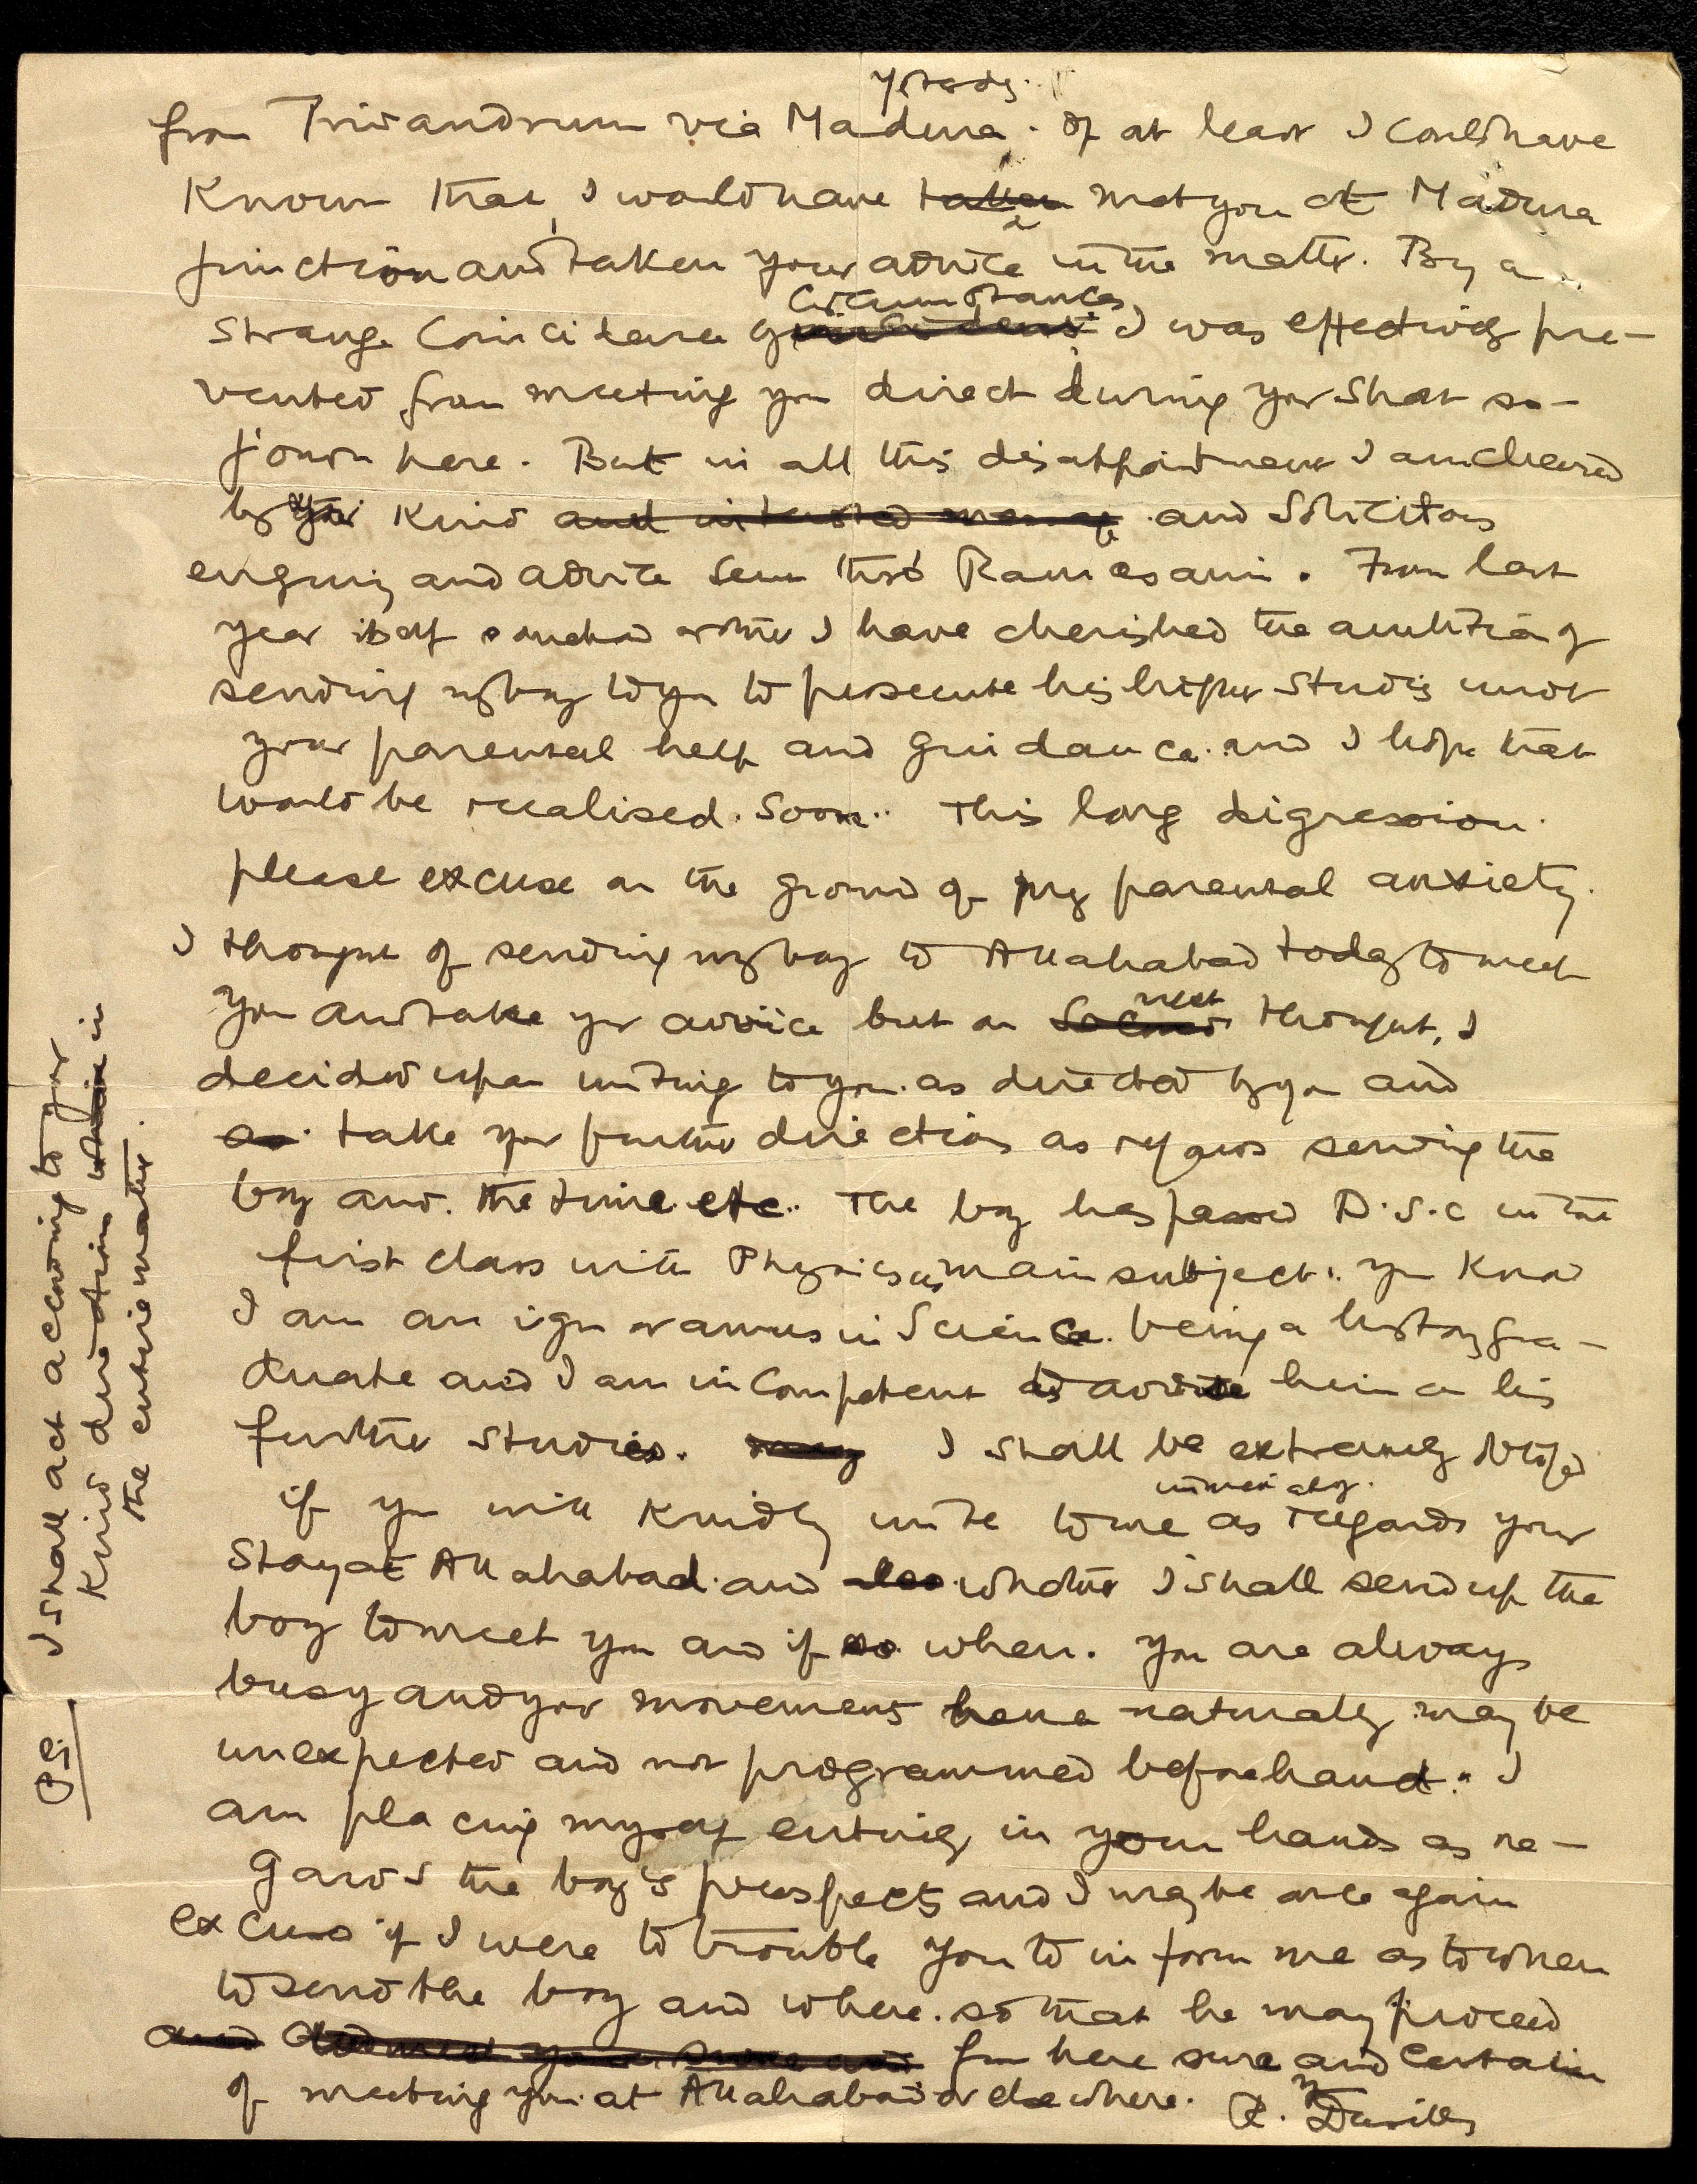 yesterday.
from Trivandrum via Madura. If at least I could have
known that, I would have taken met you at Madura
junction and taken your advice in the matter. By a
circumstances
strange coincidence of I was effectively pre-
vented from meeting you direct during your short so-
journ here. But in all this disappointment I am cheered
by your kind and interested message and solicitous
enquiry and advice sent thro' Ramesam. From last
year itself somehow or other I have cherished the ambition of
sending my boy to you to prosecute his higher studies under
your parental help and guidance and I hope that
would be realised. soon.. This long digression
please excuse on the ground of my parental anxiety.
I thought of sending my boy to Allahabad today to meet
next
you and take yr advice but on second thought, I
decided upon writing to you as directed by you and
as take your further direction as regards sending the
boy and the time etc.. The boy has passed B.S.c in the
first class with Physics as main subject. you know
I am an ignoramus in Science being a history gra-
duate and I am incompetent to advise him on his
further studies. may I shall be extremely obliged
immediately.
if you will kindly write to me as regards your
stay at Allahabad and also whether I shall send up the
boy to meet you and if so when. you are always
busy and your movements hence naturally may be
unexpected and not programmed beforehand. I
am placing myself entirely in your hands as re-
gards the boy's prospects and I may be once again
excused if I were to trouble you to inform me as to when
to send the boy and where so that he may proceed
and from here sure and certain
of meeting you at Allahabad or elsewhere.
I shall act according to your
kind directions in
the entire matter.